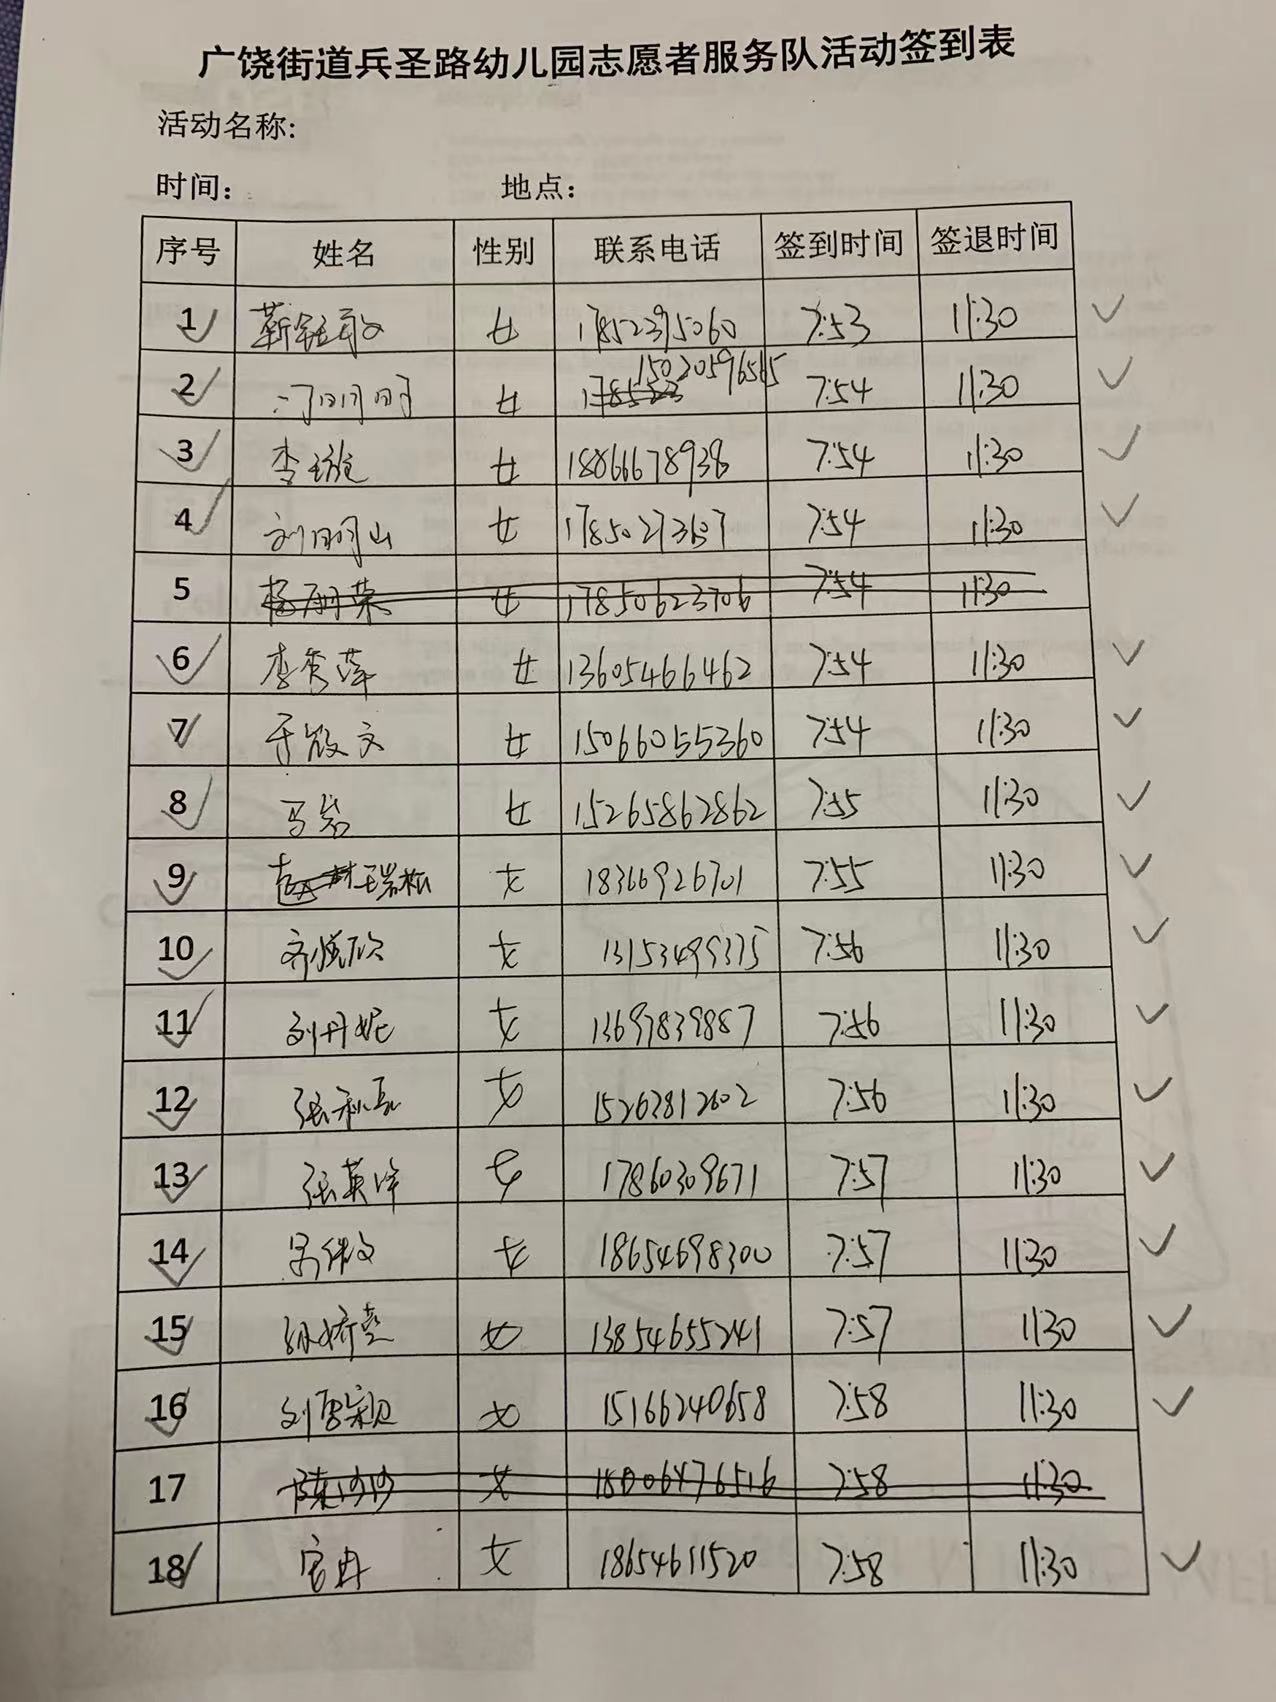 广饶街道兵圣路幼儿园志愿者服务队活动签到表
活动名称:
时间: 地点:
序号 姓名 性别 联系电话 签到时间 签退时间
1 女 17852395060 7:53 11:30
2 女 15020596565 7:54 11:30
3 李璇 女 18866678938 7:54 11:30
4 刘明山 女 17850273637 7:54 11:30
5 杨丽荣 女 17850623706 7:54 11:30
6 李秀萍 女 13605466462 7:54 11:30
7 于骏文 女 15066055360 7:54 11:30
8 马岩 女 15265862862 7:55 11:30
9 王瑞松 女 18366926701 7:55 11:30
10 齐悦欣 女 13153499375 7:56 11:30
11 刘丹妮 女 13697839887 7:56 11:30
12 女 15263812602 7:56 11:30
13 张英泽 女 17860309671 7:57 11:30
14 女 18654698300 7:57 11:30
15 孙娇燕 女 13854655241 7:57 11:30
16 刘雪颖 女 15166240658 7:58 11:30
17 陈沙沙 女 18006476516 7:58 11:30
18 官冉 女 18654611520 7:58 11:30